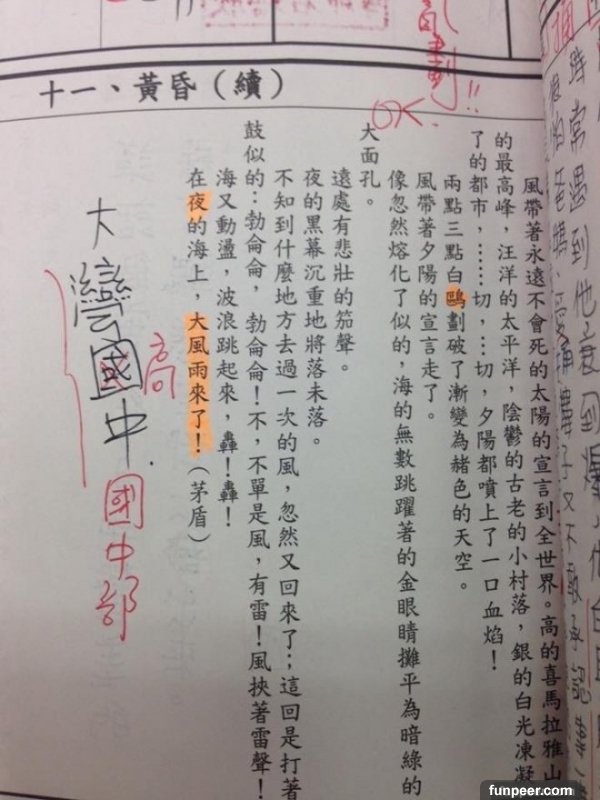 時常遇到他衰到爆
十一、黃昏（續）
OK.
風帶著永遠不會死的太陽的宣言到全世界。高的喜馬拉雅山
的最高峰，汪洋的太平洋，陰鬱的古老的小村落，銀的白光凍凝
了的都市，……切，…切，夕陽都噴上了一口血焰！
兩點三點白鷗劃破了漸變為赭色的天空。
風帶著夕陽的宣言走了。
像忽然熔化了似的，海的無數跳躍著的金眼睛攤平為暗綠的
大面孔。
遠處有悲壯的笳聲。
夜的黑幕沉重地將落未落。
不知到什麼地方去過一次的風，忽然又回來了；這回是打著
鼓似的：勃侖侖，勃侖侖！不，不單是風，有雷！風挾著雷聲！
海又動盪，波浪跳起來，轟！轟！
在夜的海上，大風雨來了！（茅盾）
高
大灣國中.
國中部
funpeer.com